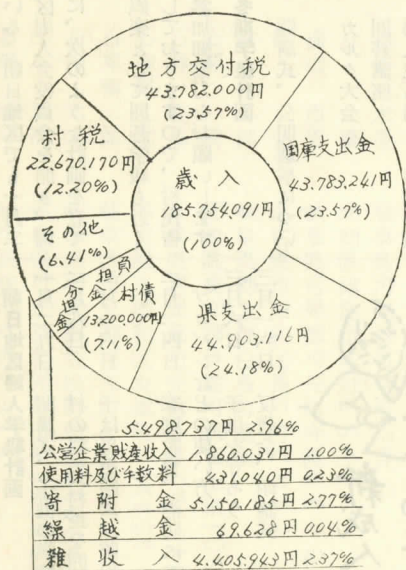 地方交付税
43.782.000円
(23.57%)
村税
22.670.170円
(12.20%)
国庫支出金
43.783.241円
(23.57%)
歳入
185.754.091円
(100%)
その他
(6.41%)
分担金
負担金
村債
13,200,000円
(7.11%)
県支出金
44.903.116円
(24.18%)
5.498.737円 2.96%
公営企業財産収入 1.860.031円 1.00%
使用料及び手数料 431.040円 0.23%
寄附金 5.150.185円 2.77%
繰越金 69.628円 0.04%
雑収入 4.405.943円 2.37%